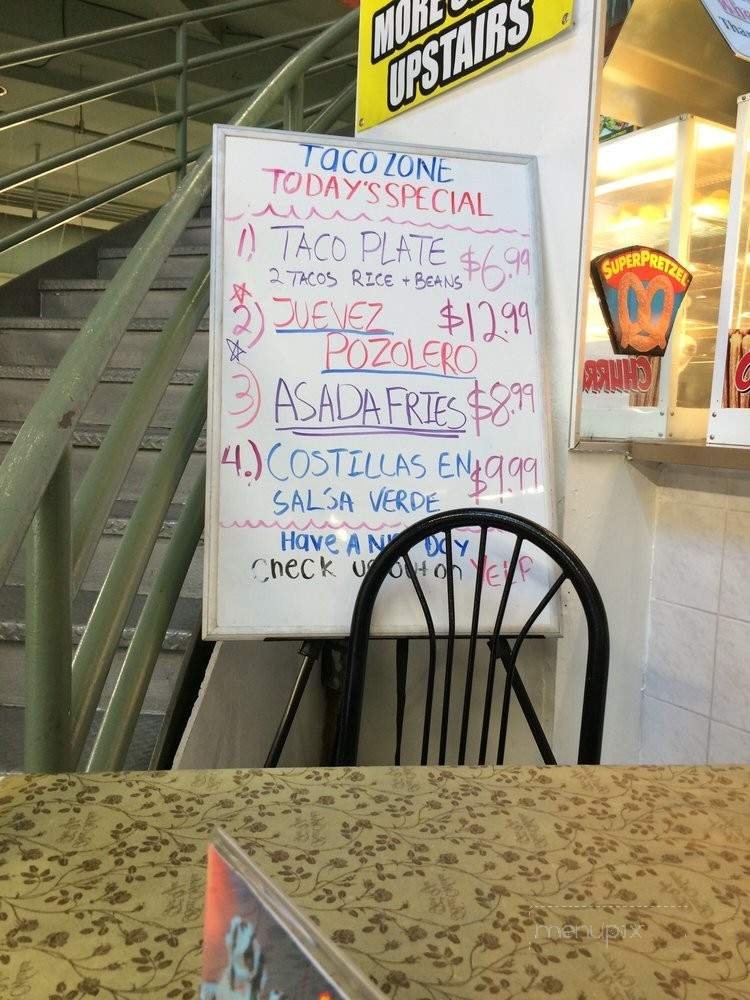 MORE
UPSTAIRS
TACO ZONE
TODAY'S SPECIAL
1) TACO PLATE $6.99
2 TACOS RICE + BEANS
2) JUEVEZ $12.99
POZOLERO
3) ASADA FRIES $8.99
4.) COSTILLAS EN $9.99
SALSA VERDE
Have A NI DAY
Check us out on YELP
SUPERPRETZEL
CHURR
menupix